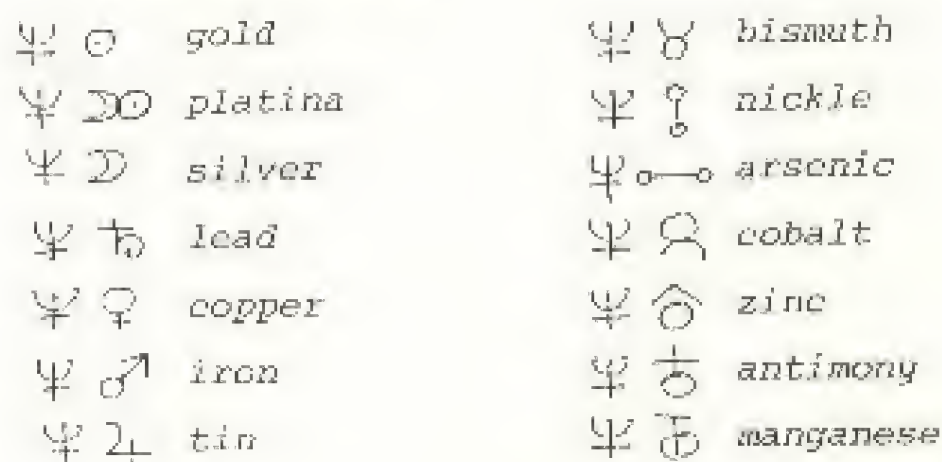 ♆ ☉ gold
♆ ☽☉ platina
♆ ☽ silver
♆ ♄ lead
♆ ♀ copper
♆ ♂ iron
♆ ♃ tin
♆ ♉ bismuth
♆ nickle
♆ arsenic
♆ cobalt
♆ zinc
♆ antimony
♆ manganese